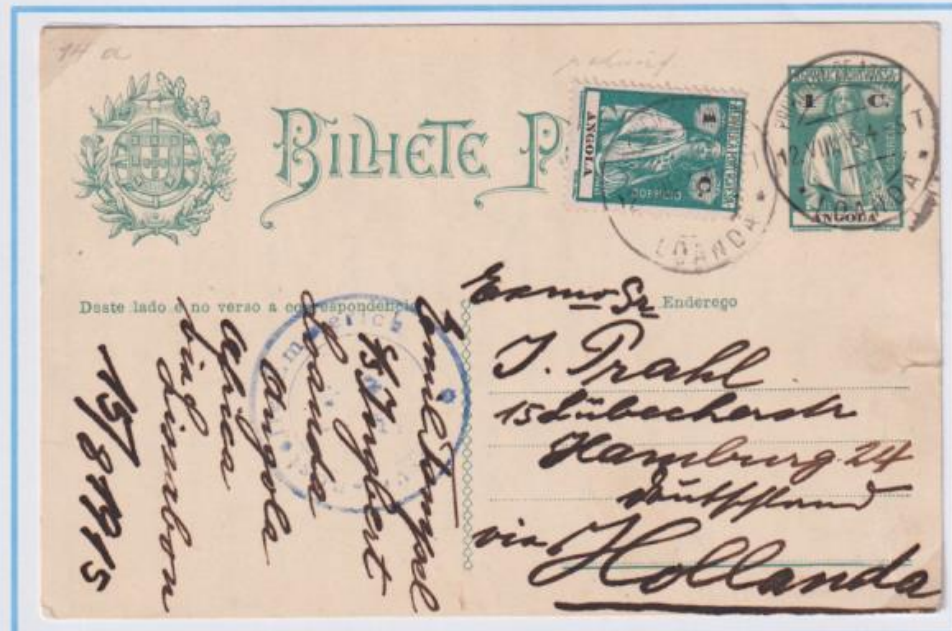 14 a
BILHETE P
1 C.
ANGOLA
CORREIO
1 C.
ANGOLA
LOANDA
LOANDA
Deste lado e no verso a correspondencia
Endereço
Exmo Sr
J. Prahl
15 Lübecherstr
Hamburg 24
Deutschland
via Hollanda
Emil Stempel
Loanda
Angola
Africa
via Lissabon
15/8 1915